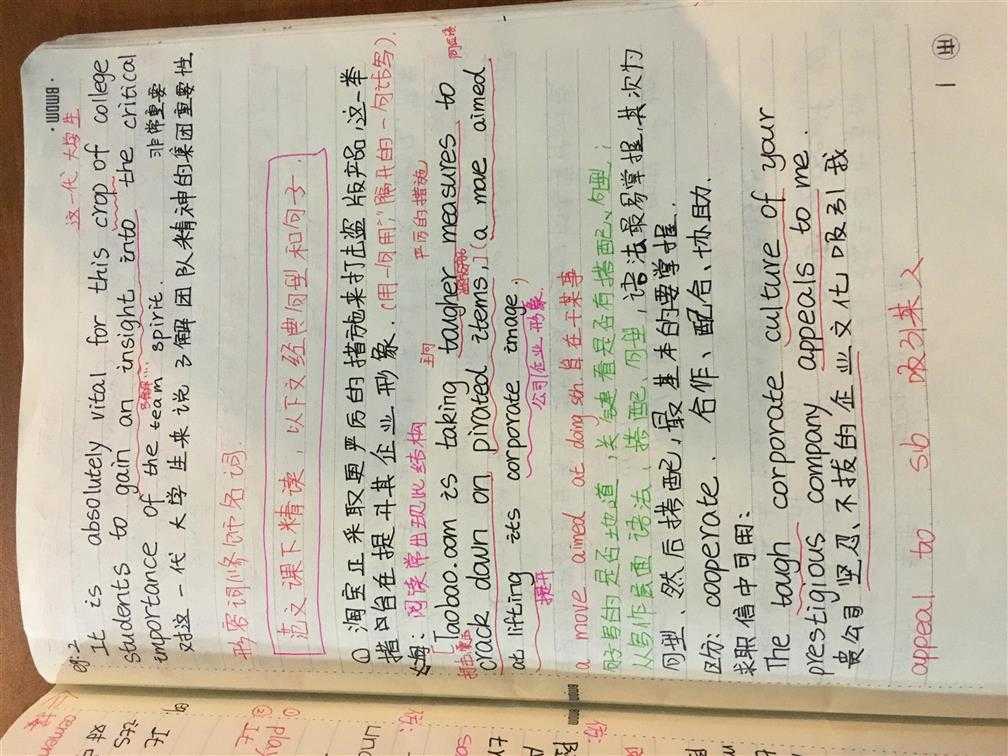 BMDM
这一代 大学生
eg.2
It is absolutely vital for this crop of college
students to gain an insight into the critical
了解…
非常重要
importance of the team spirit.
对这一代大学生来说了解团队精神的集团重要性
形容词修饰名词.
范文课下精读,以下文经典句型和句子.
① 淘宝正采取更严厉的措施来打击盗版产品,这一举
措旨在提升其企业形象.(用一句用","隔开的一句译写).
阅读常出现此结构
主句
严厉的措施
同位语
[Taobao.com is taking tougher measures to
打击
crack down on pirated items,](a move aimed
at lifting its corporate image.)
提升
公司/企业形象.
a move aimed at doing sth. 旨在干某事
句写的是否地道,关键看是否有搭配,句型;
从写作层面 语法、搭配、句型,语法最易掌握,其次为
句型、然后搭配,最基本的要掌握.
区分: cooperate. 合作、配合、协助.
求职信中可用:
The tough corporate culture of your
prestigious company appeals to me.
贵公司坚忍、不拔的企业文化吸引我
appeal to sb 吸引某人